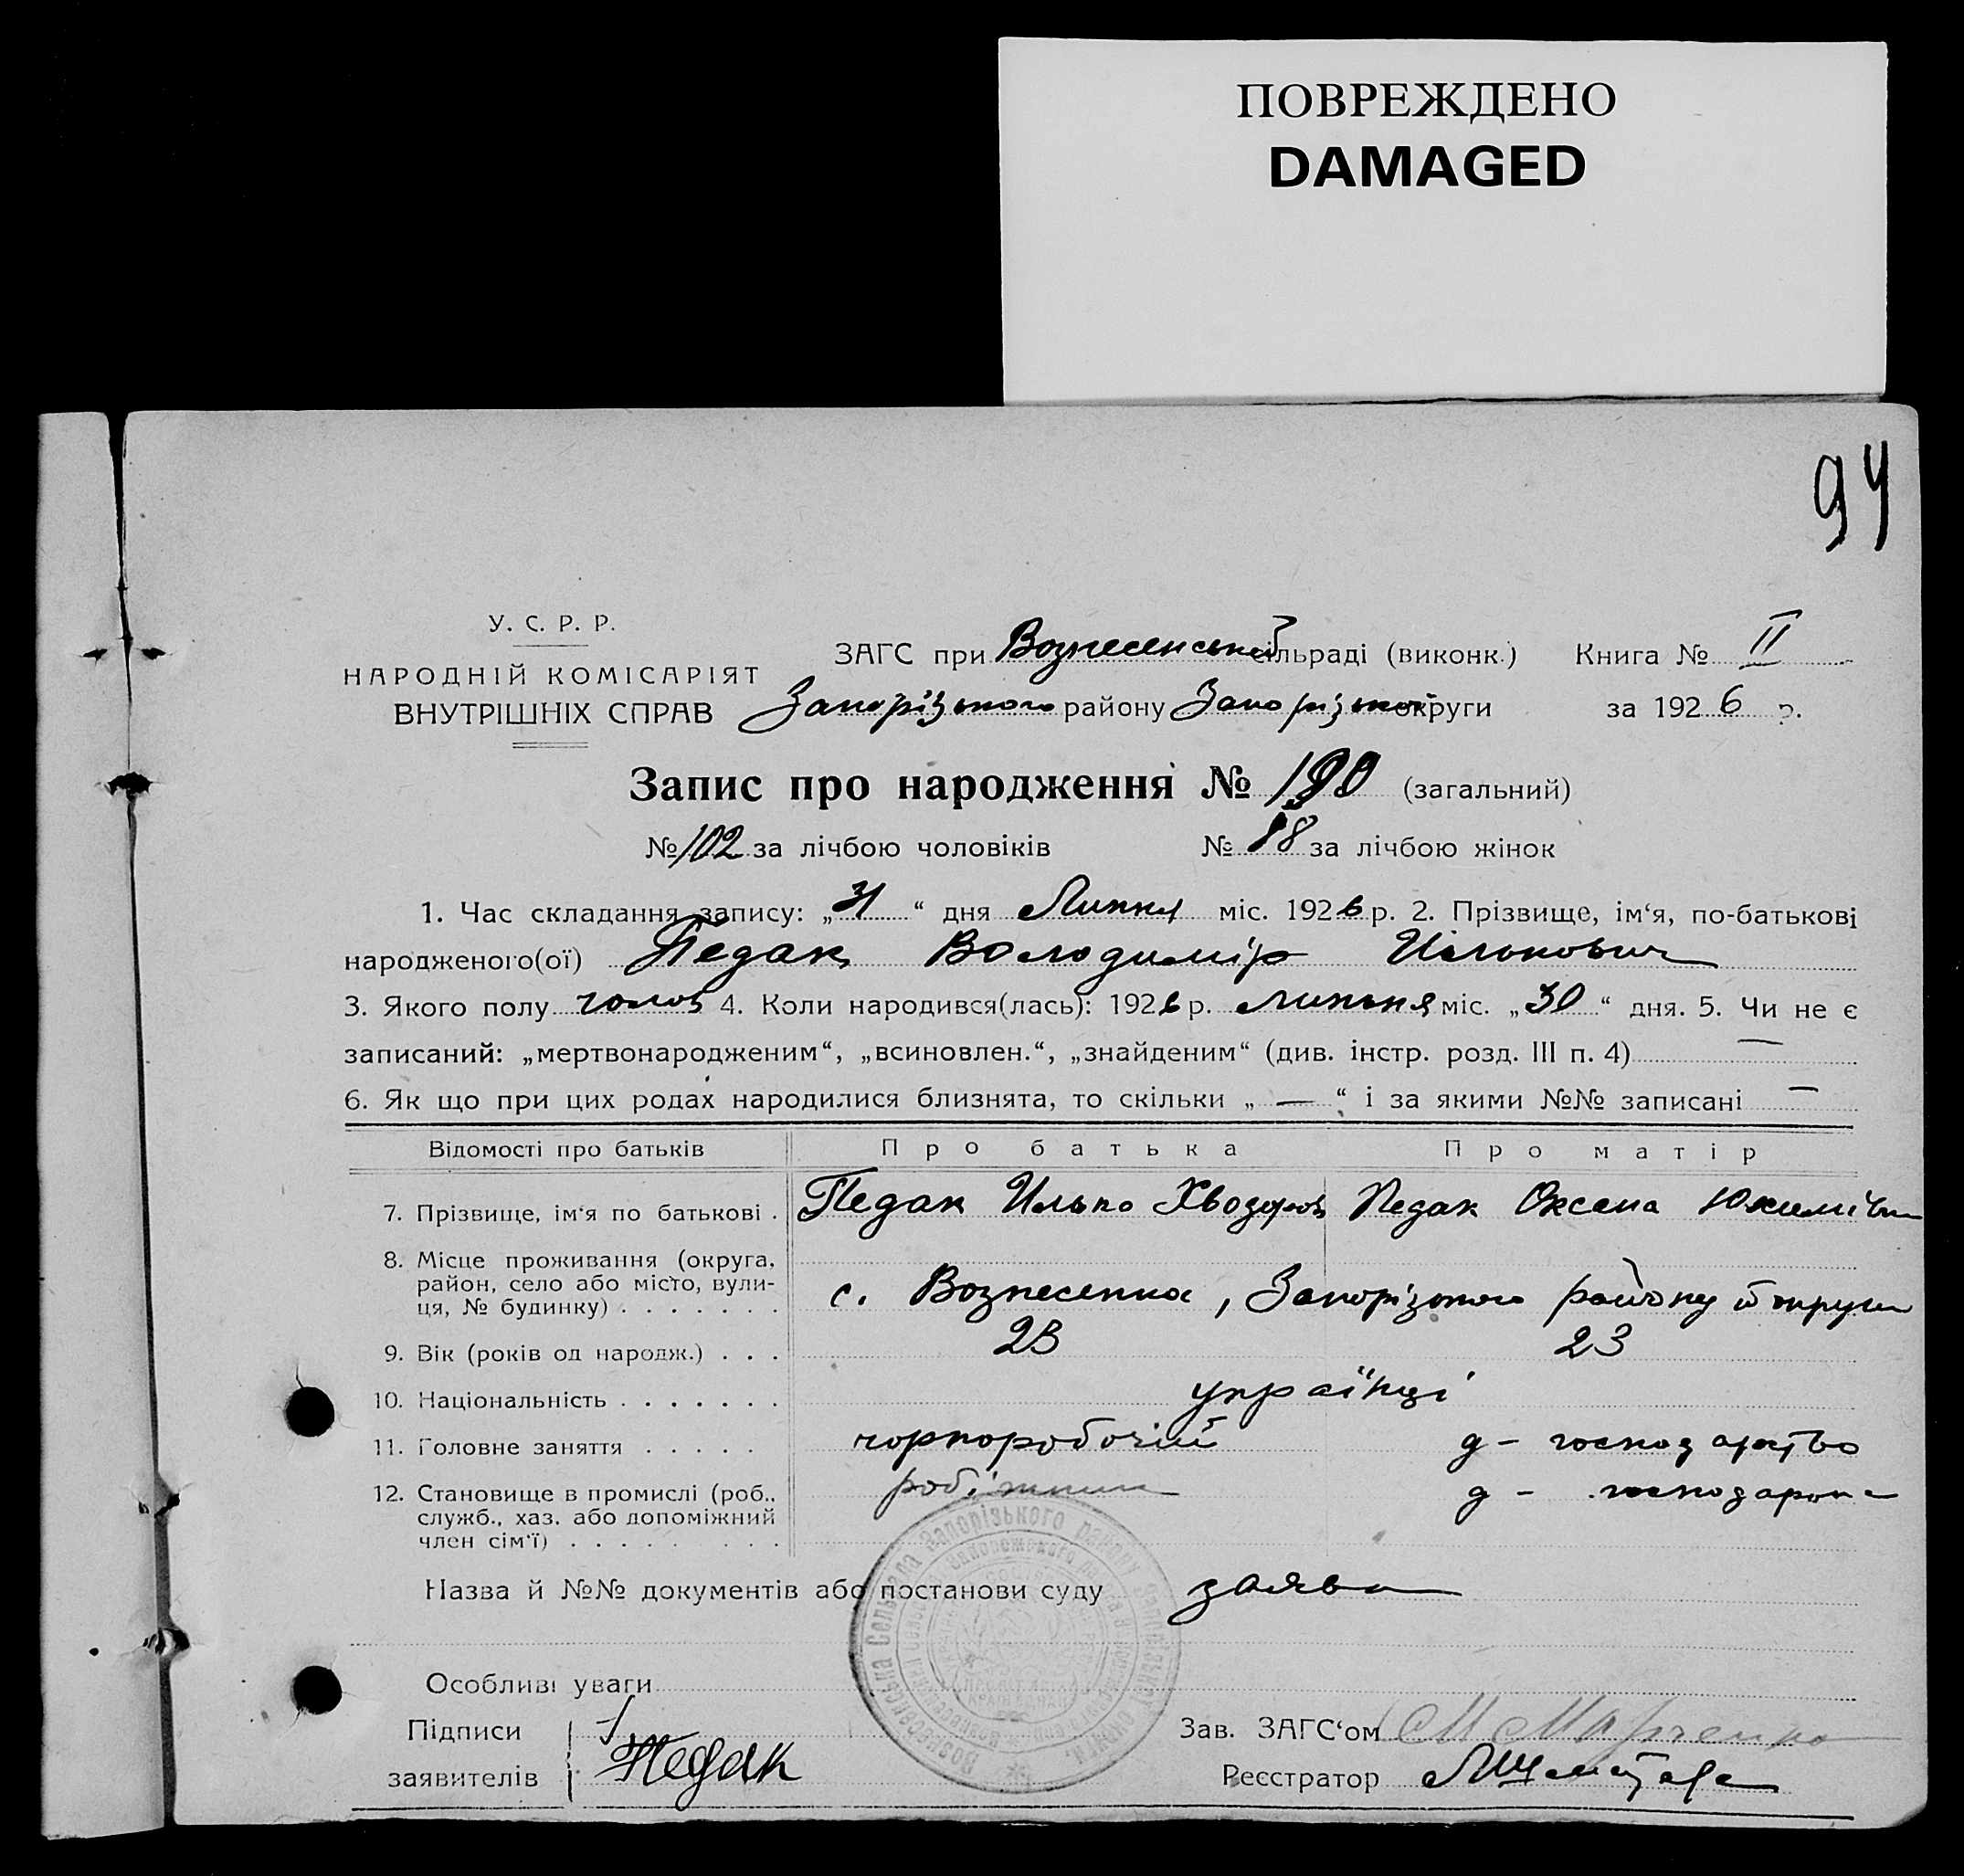 ПОВРЕЖДЕНО
DAMAGED
94
У. С. Р. Р.
НАРОДНІЙ КОМІСАРІЯТ
ВНУТРІШНІХ СПРАВ
ЗАГС при Вознесенській сільраді (виконк.) Книга № II
Запорізького району Запорізької округи за 1926 р.
Запис про народження № 190 (загальний)
№ 102 за лічбою чоловіків № 88 за лічбою жінок
1. Час складання запису: „31“ дня Липня міс. 1926 р. 2. Прізвище, ім‘я, по-батькові
народженого(ої) Педак Володимір Ількович
3. Якого полу чолов 4. Коли народився(лась): 1926 р. липня міс. „30“ дня. 5. Чи не є
записаний: „мертвонародженим“, „всиновлен.“, „знайденим“ (див. інстр. розд. III п. 4) —
6. Як що при цих родах народилися близнята, то скільки „—“ і за якими №№ записані —
Відомості про батьків Про батька Про матір
7. Прізвище, ім‘я по батькові . Педак Илько Хводоров Педак Оксана Юхимівна
8. Місце проживання (округа, район, село або місто, вулиця, № будинку) . . . . . . . с. Вознесенка, Запорізького району й округи
9. Вік (років од народж.) . . . 23 23
10. Національність . . . . . . . українці
11. Головне заняття . . . . . чорноробочий д - господарство
12. Становище в промислі (роб., служб., хаз. або допоміжний член сім‘ї) . . . . . . . . . робітник д - господарка
Назва й №№ документів або постанови суду заява
Особливі уваги
Підписи
заявителів Педак
Зав. ЗАГС‘ом М Марченко
Реєстратор
Вознесенська Сельрада Запорізького району Запорізької округи